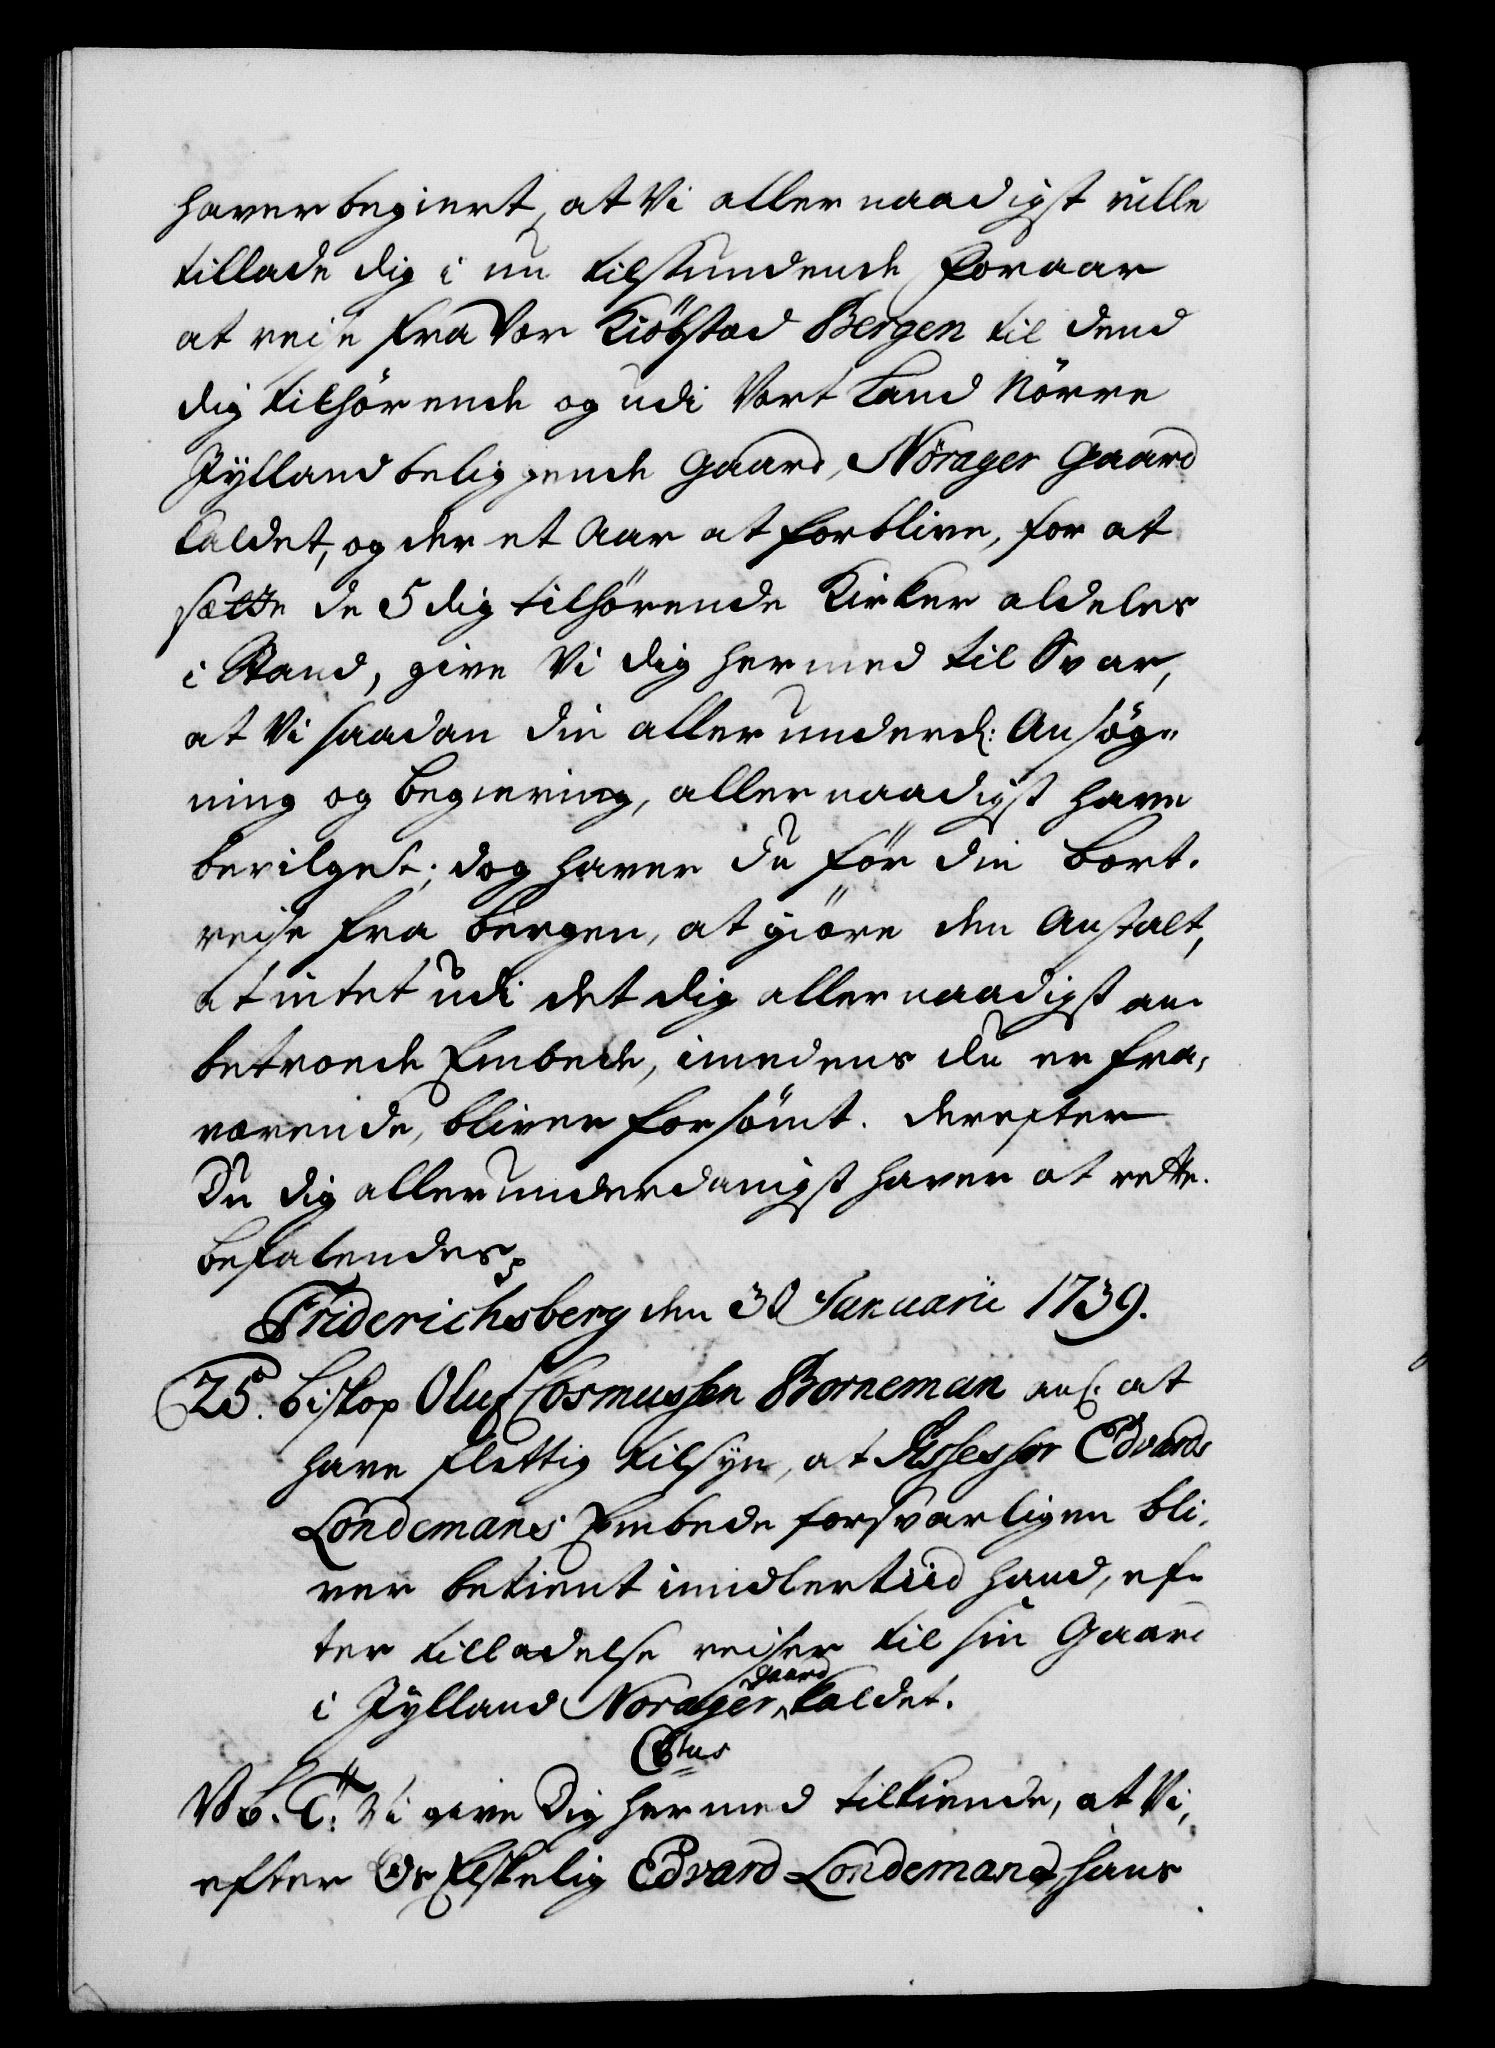 haver begiert, at Vi allernaadigst ville
tillade dig i nu tilstundende Foraar
at reise fra Vor Kiöbstad Bergen til dend
dig tilhörende og udi Vort Land Nörre
Jylland beliggende Gaard, Nörager Gaard
kaldet, og der et Aar at forblive, for at
sætte de 5 dig tilhörende Kirker aldeles
i Stand, give Vi dig hermed til Svar,
at Vi saadan din allerunderd: Ansög-
ning og begiering, allernaadigst have
bevilget; dog haver du för din Bort-
reise fra Bergen, at giöre den Anstalt,
at intet udi det dig allernaadigst an-
betroede Embede, imedens du er fra-
værende, bliver forsömt. derefter
Du dig allerunderdanigst haver at rette.
Befalendes
Friderichsberg den 30 Januarii 1739.
25. Biskop Oluf Cosmussen Borneman anl: at
have flittig tilsyn, at Assessor Edvards
Londemans Embede forsvarligen bli-
ver betient imidlertiid hand, ef-
ter tilladelse reiser til sin Gaard
i Jylland Norager gaard kaldet.
C 6tus
V G. T. Vi give Dig hermed tilkiende, at Vi,
efter Os Elskelig Edvard Londemans, hans